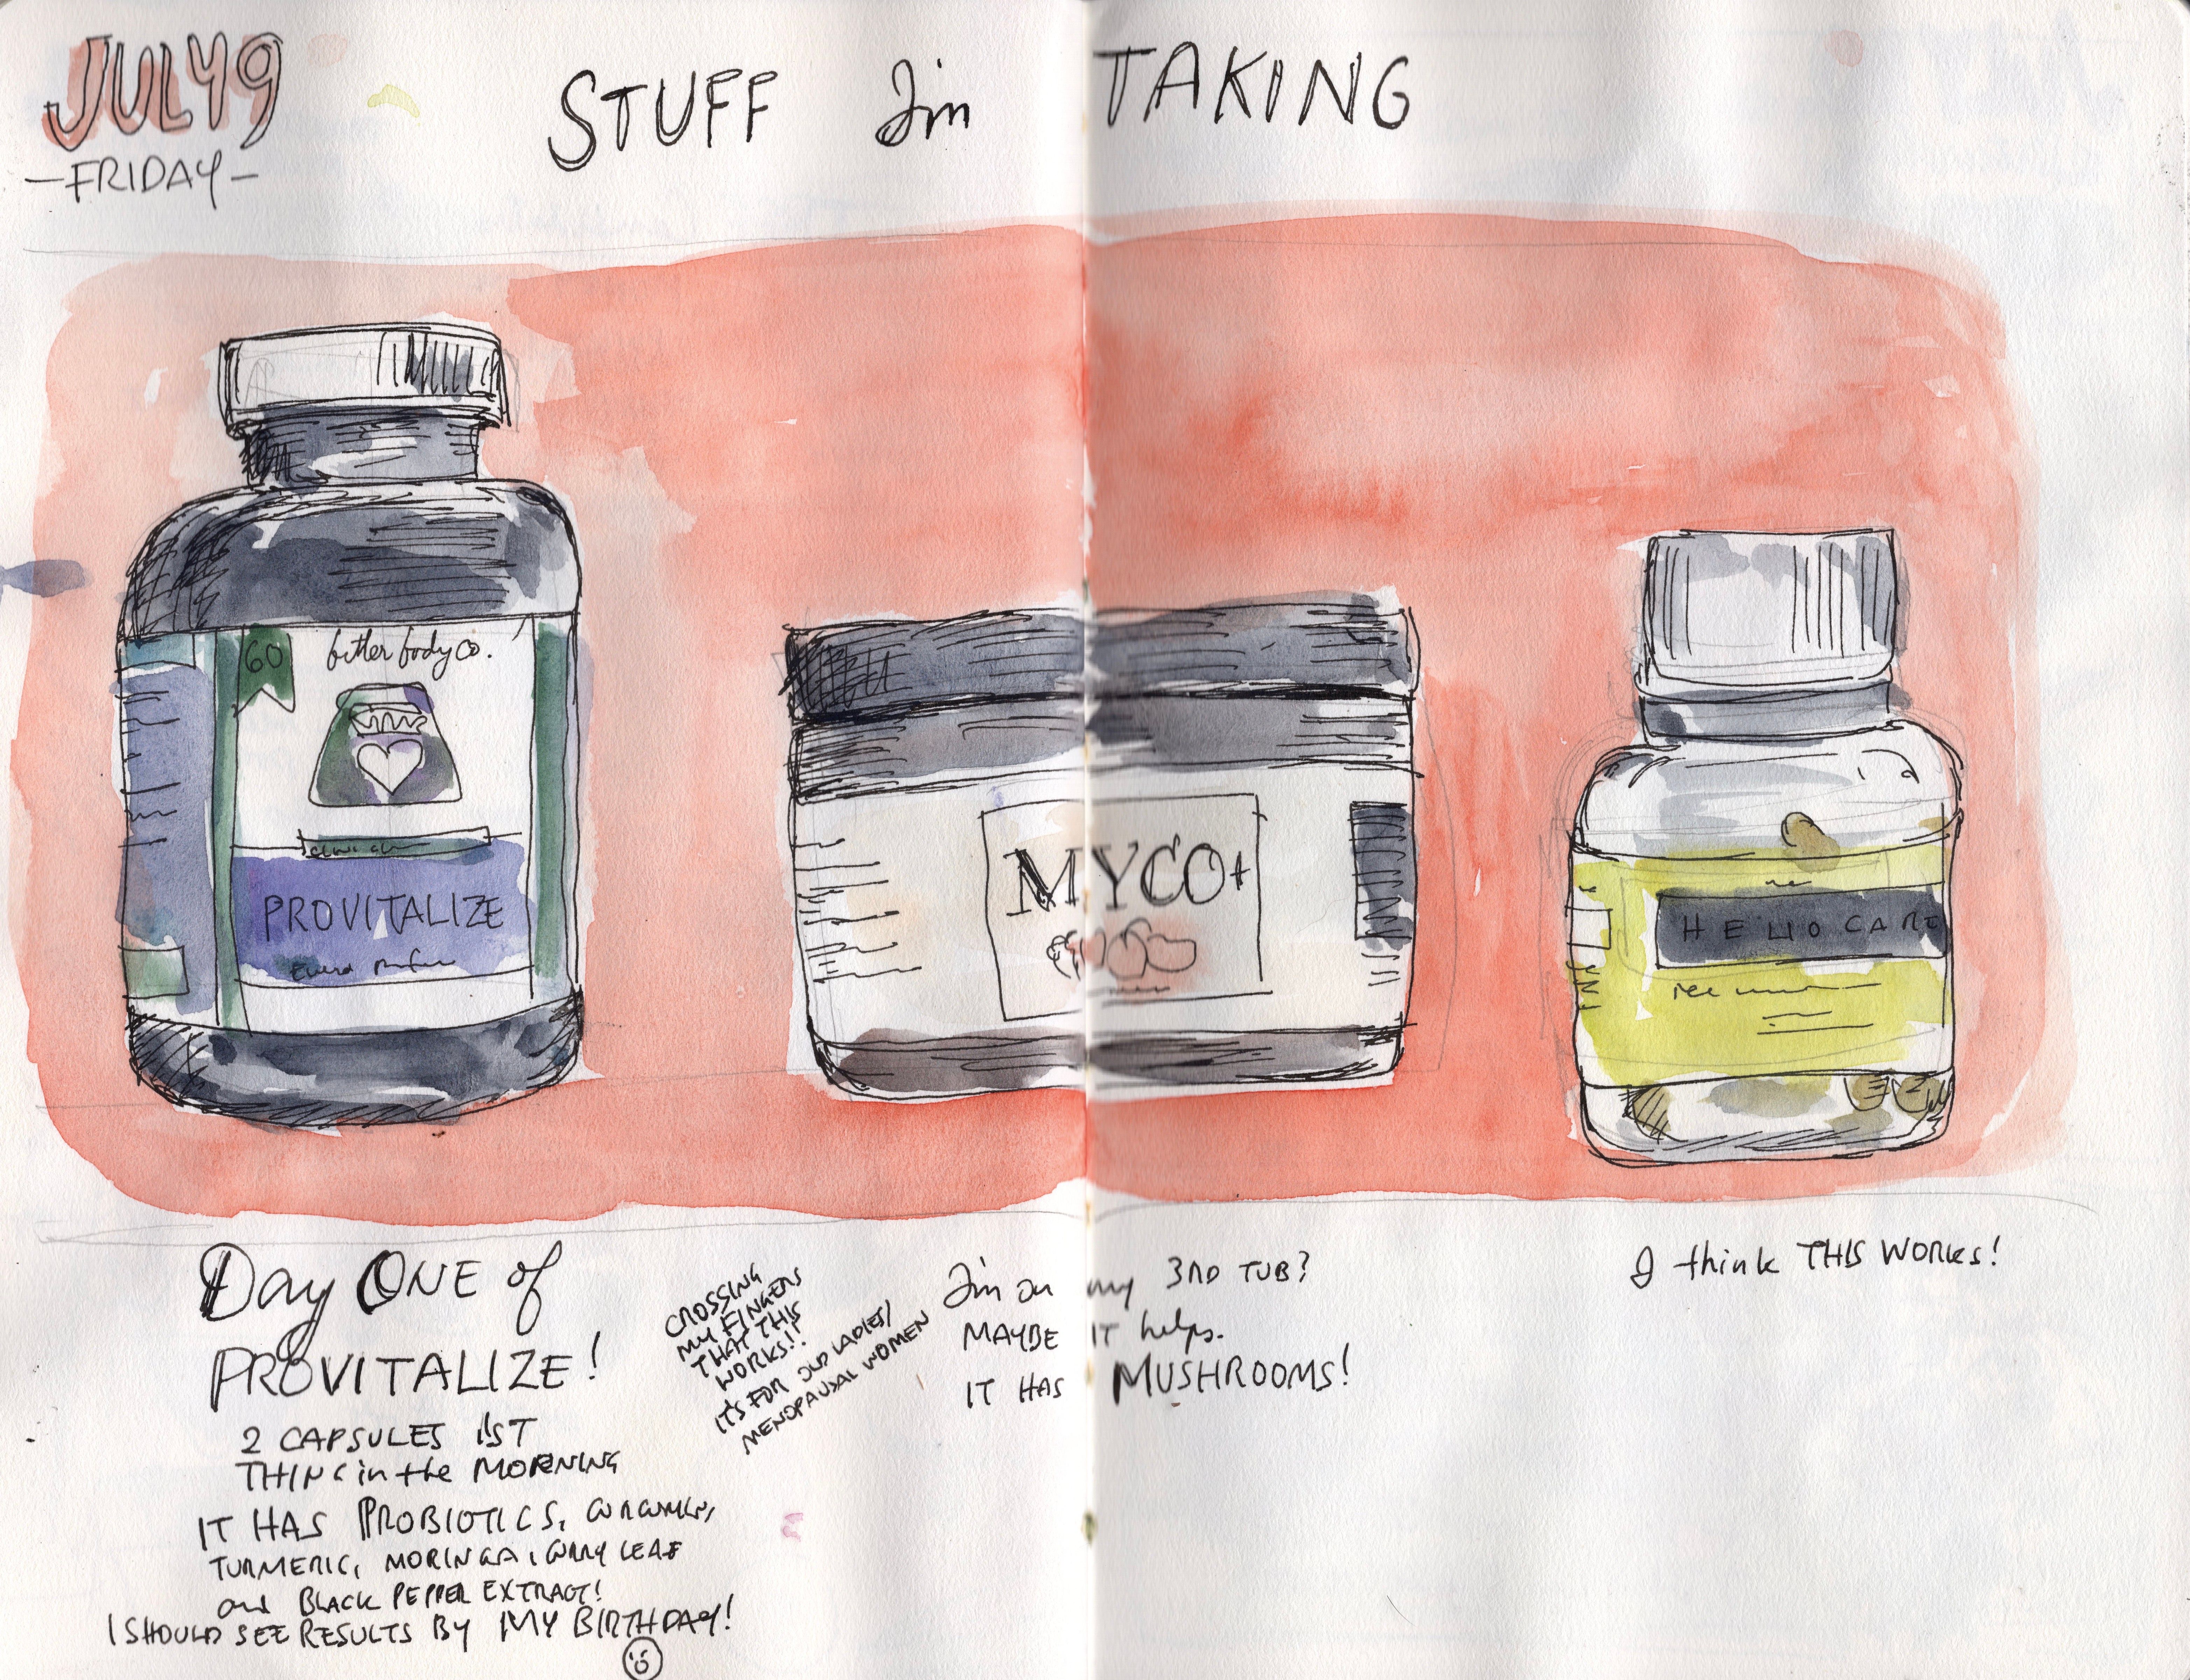 JULY 9
-FRIDAY-
STUFF I'm TAKING
60
better body co.
PROVITALIZE
MYCO+
HELIOCARE
Day ONE of
PROVITALIZE!
2 CAPSULES 1ST
THING in the MORNING
IT HAS PROBIOTICS, CURCUMIN,
TURMERIC, MORINGA, CURRY LEAF
and BLACK PEPPER EXTRACT!
I SHOULD SEE RESULTS BY MY BIRTHDAY!
CROSSING
MY FINGERS
THAT THIS
WORKS!!
IT'S FOR OLD LADIES/
MENOPAUSAL WOMEN
I'm on my 3RD TUB?
MAYBE IT helps.
IT HAS MUSHROOMS!
I think THIS WORKS!